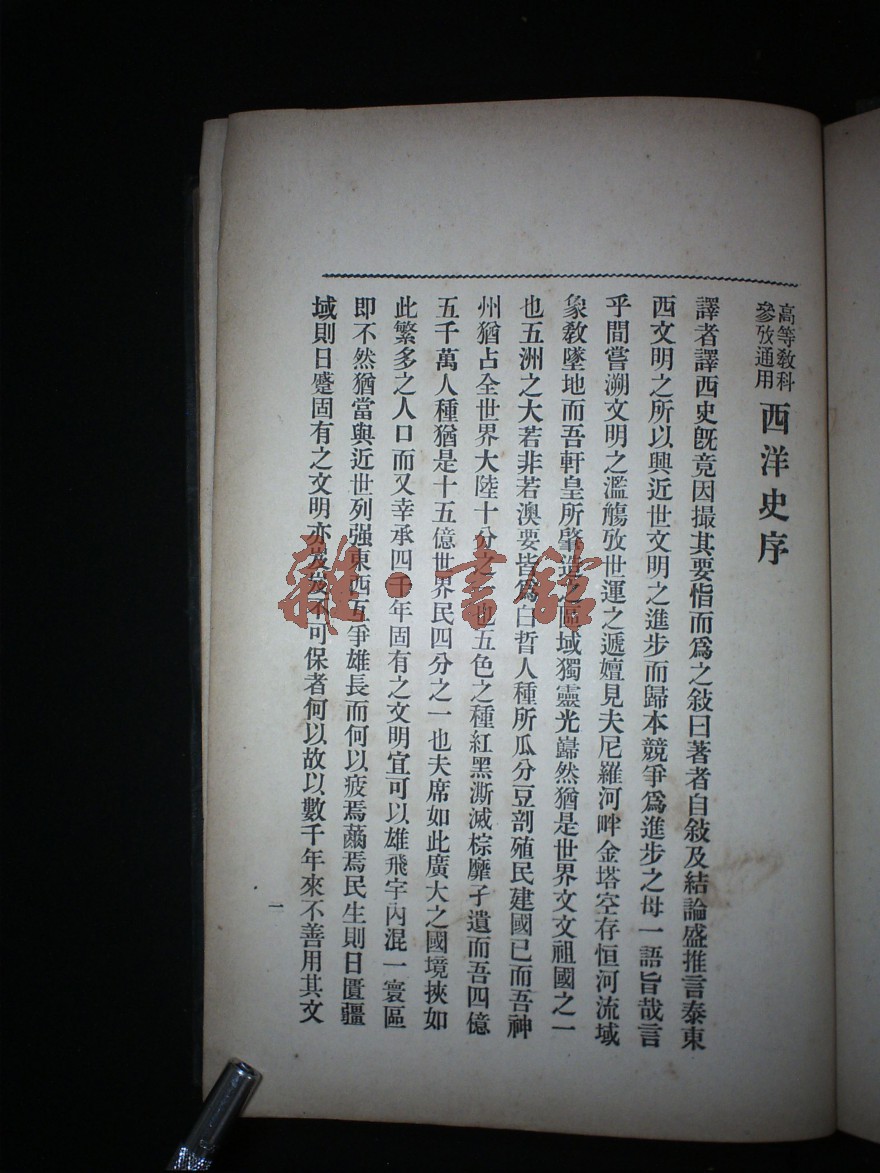 高等教科
參攷通用
西洋史序
譯者譯西史旣竟因撮其要恉而爲之敍曰著者自敍及結論盛推言泰東
西文明之所以興近世文明之進步而歸本競爭爲進步之母一語旨哉言
乎間嘗溯文明之濫觴攷世運之遞嬗見夫尼羅河畔金塔空存恒河流域
象敎墜地而吾軒皇所肇造之區域獨靈光巋然猶是世界文文祖國之一
也五洲之大若非若澳要皆爲白晳人種所瓜分豆剖殖民建國已而吾神
州猶占全世界大陸十分之一也五色之種紅黑澌滅棕靡孑遺而吾四億
五千萬人種猶是十五億世界民四分之一也夫席如此廣大之國境挾如
此繁多之人口而又幸承四千年固有之文明宜可以雄飛宇內混一寰區
即不然猶當與近世列强東西互爭雄長而何以疲焉薾焉民生則日匱疆
域則日蹙固有之文明亦岌岌不可保者何以故以數千年來不善用其文
一
雜·書館